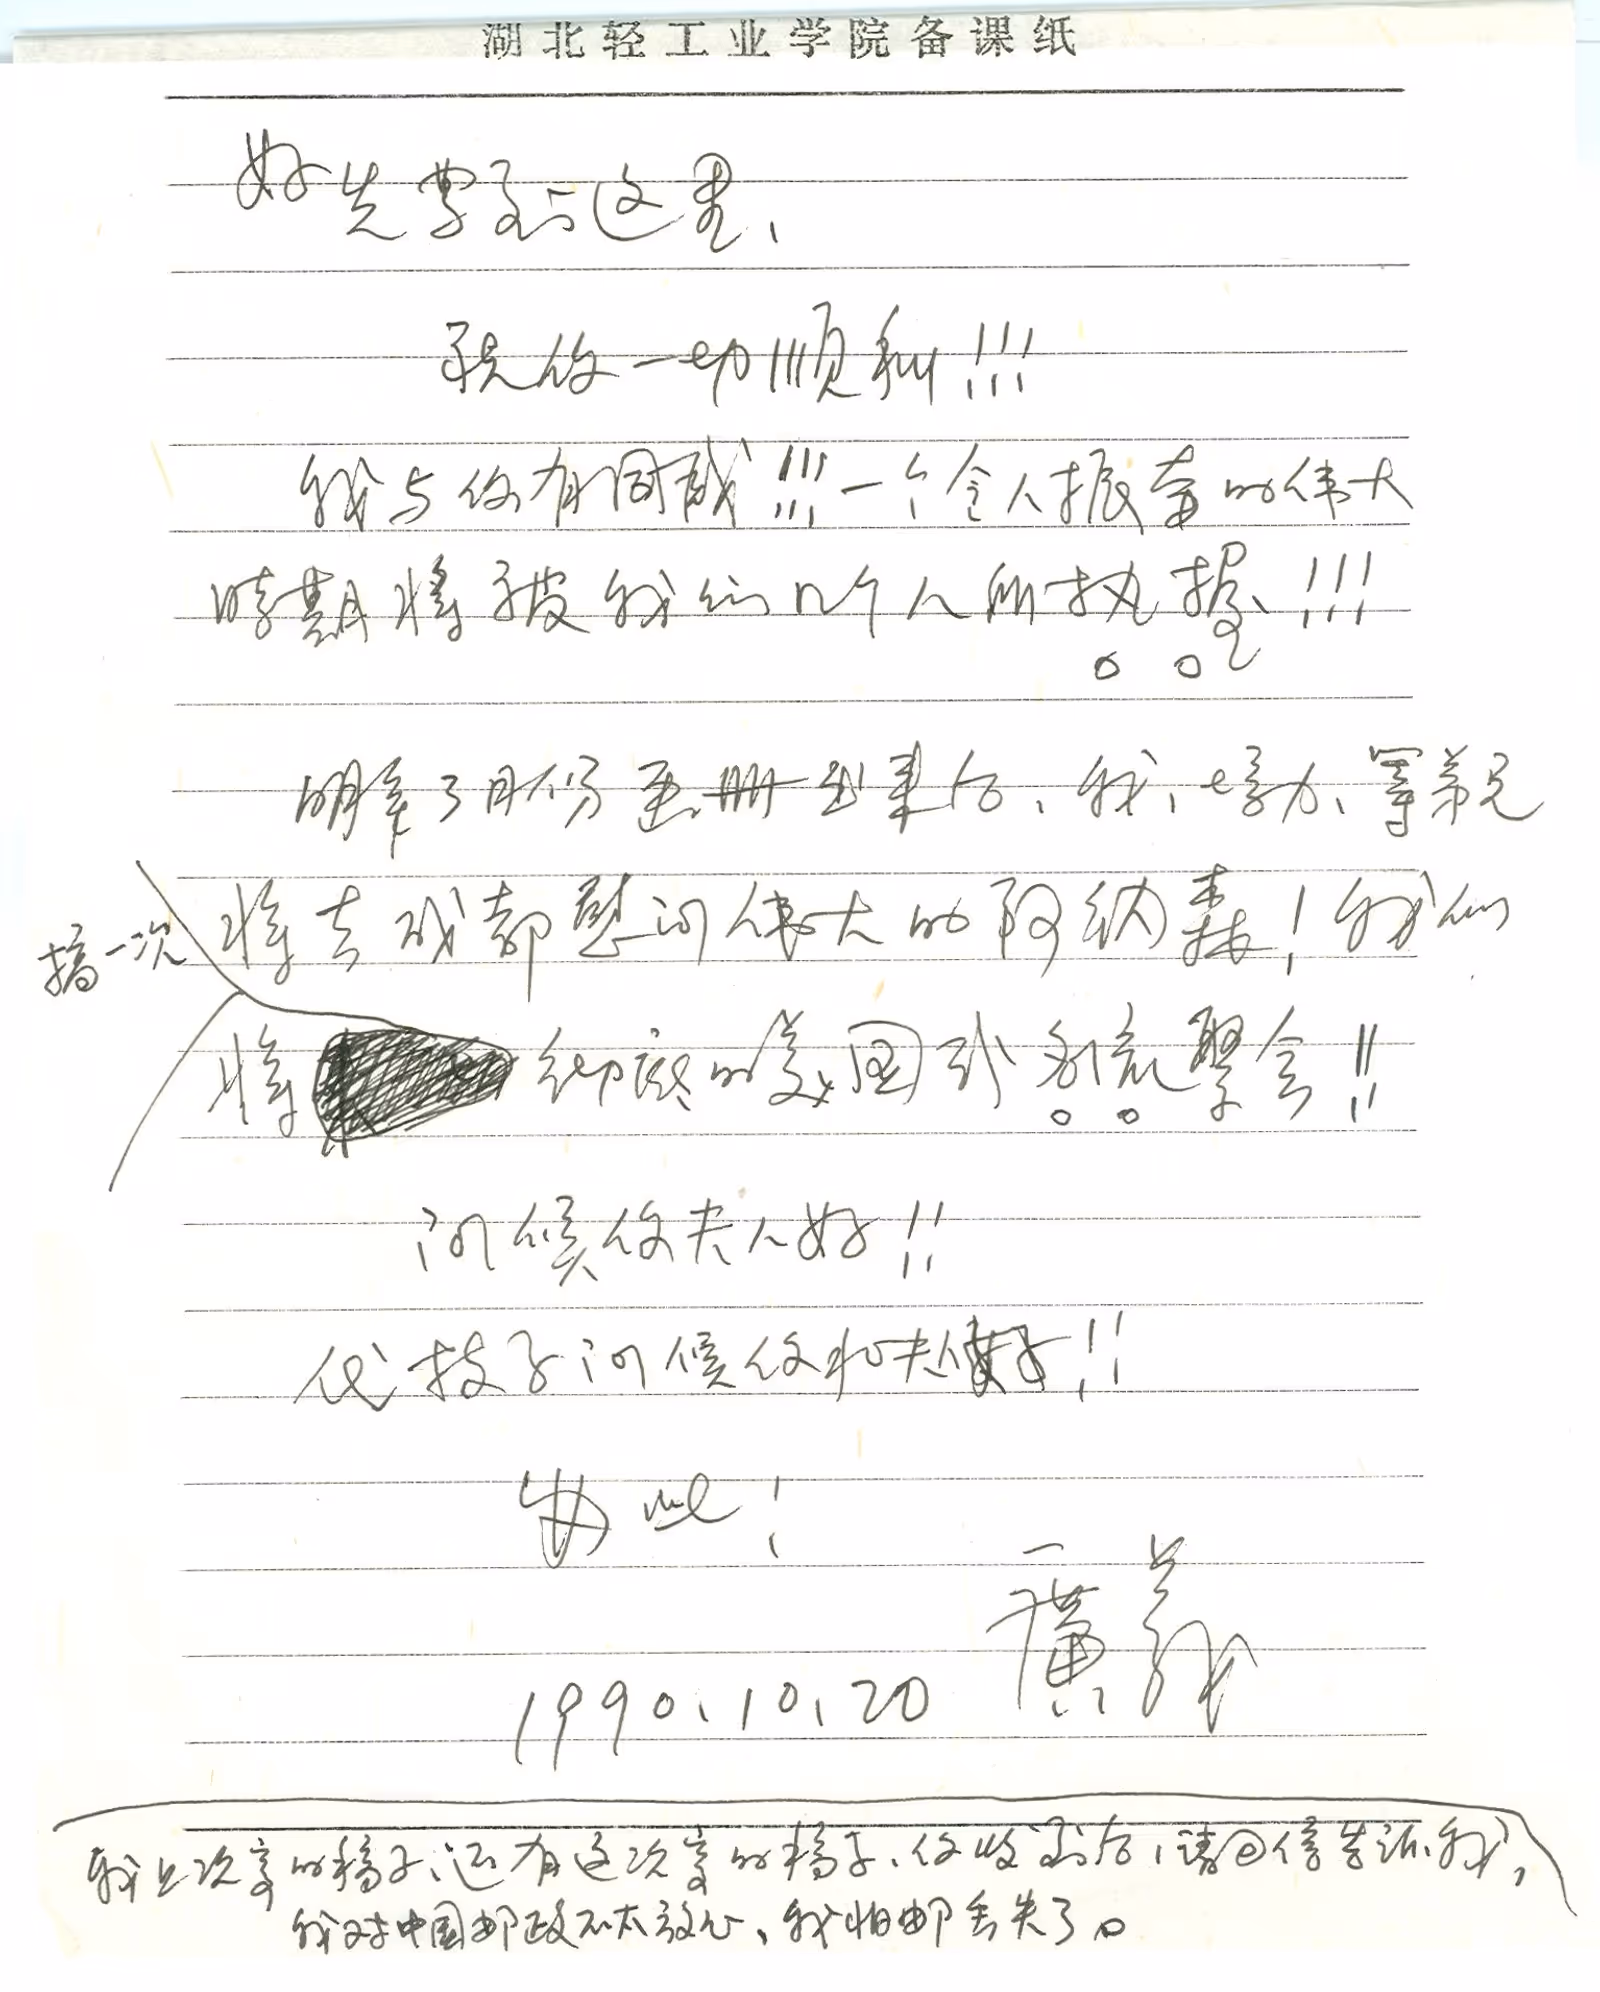 湖北轻工业学院备课纸
好先写到这里、
祝你一切顺利!!!
我与你有同感!!!一个令人振奋的伟大
时期将被我们几个人所执握、!!!
明年3月份画册出来后、我、培力、等弟兄
将去成都慰问伟大的阿纳森!我们
搞一次
将 彻底的美国式各流聚会!!
问候你夫人好!!
代技子问候你和夫人好!!
至此!
广义
1990.10.20
我上次寄的稿子、还有这次寄的稿子、你收到后、请回信告诉我,
我对中国邮政不太放心、我怕邮丢失了。